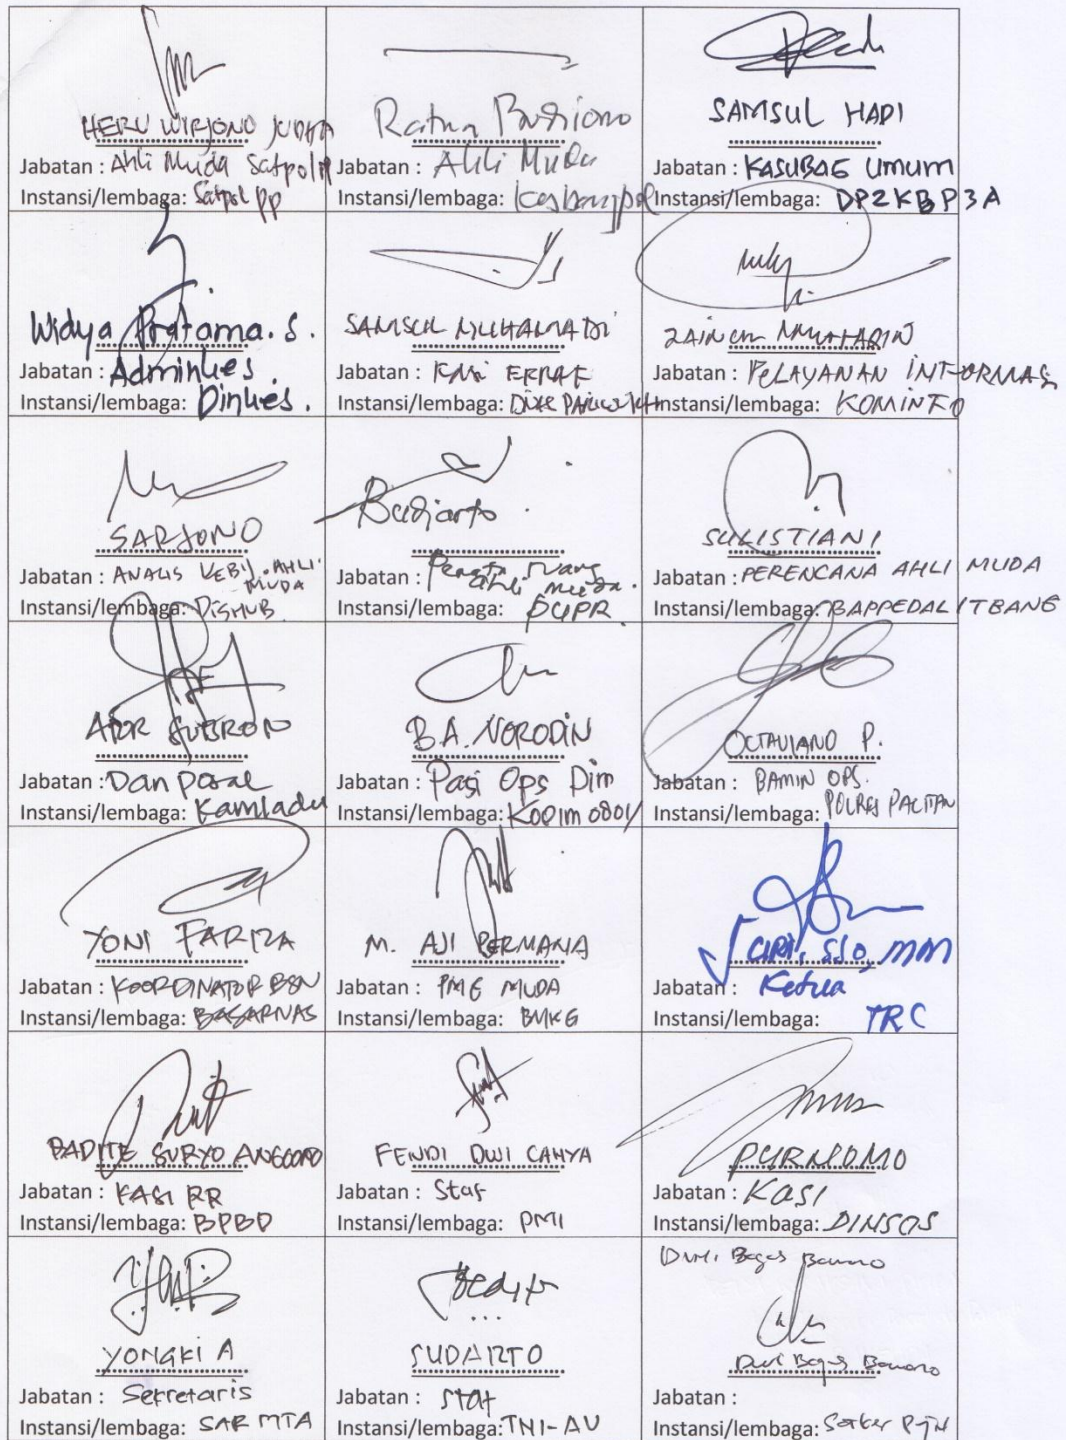 HERU WIRJONO JUDHA
Jabatan : Ahli Muda Satpol PP
Instansi/lembaga: Satpol PP
Ratna Budiono
Jabatan : Ahli Muda
Instansi/lembaga: Kesbangpol
SAMSUL HADI
Jabatan : KASUBAG UMUM
Instansi/lembaga: DP2KBP3A
Widya Pratama. S.
Jabatan : Adminkes.
Instansi/lembaga: Dinkes.
SAMSUL MUHAMADI
Jabatan : KASI EKRAF
Instansi/lembaga:
ZAINUL
Jabatan : PELAYANAN INFORMASI
Instansi/lembaga: KOMINFO
SARJONO
Jabatan : ANALIS KEBIJ. AHLI MUDA
Instansi/lembaga: DISHUB
Budiarto.
Jabatan : Penata ruang ahli muda.
Instansi/lembaga: PUPR
SULISTIANI
Jabatan : PERENCANA AHLI MUDA
Instansi/lembaga: BAPPEDALITBANG
Jabatan : Dan posal
Instansi/lembaga: Kamladu
B.A. NORODIN
Jabatan : Pasi Ops Dim
Instansi/lembaga: Kodim 0801/
OCTAVIANO P.
Jabatan : BAMIN OPS.
Instansi/lembaga: POLRES PACITAN
YONI FARIZA
Jabatan : KOORDINATOR
Instansi/lembaga: BASARNAS
M. AJI PERMANA
Jabatan : PMG MUDA
Instansi/lembaga: BMKG
Jabatan : Ketua
Instansi/lembaga: TRC
RADITE SURYO ANGGONO
Jabatan : KASI RR
Instansi/lembaga: BPBD
FENDI DWI CAHYA
Jabatan : Staf
Instansi/lembaga: PMI
PURNOMO
Jabatan : Kasi
Instansi/lembaga: DINSOS
YONGKI A
Jabatan : Sekretaris
Instansi/lembaga: SAR MTA
SUDARTO
Jabatan : Staf
Instansi/lembaga: TNI-AU
Dwi Bagus
Dwi Bagus
Jabatan :
Instansi/lembaga: Satker PJN